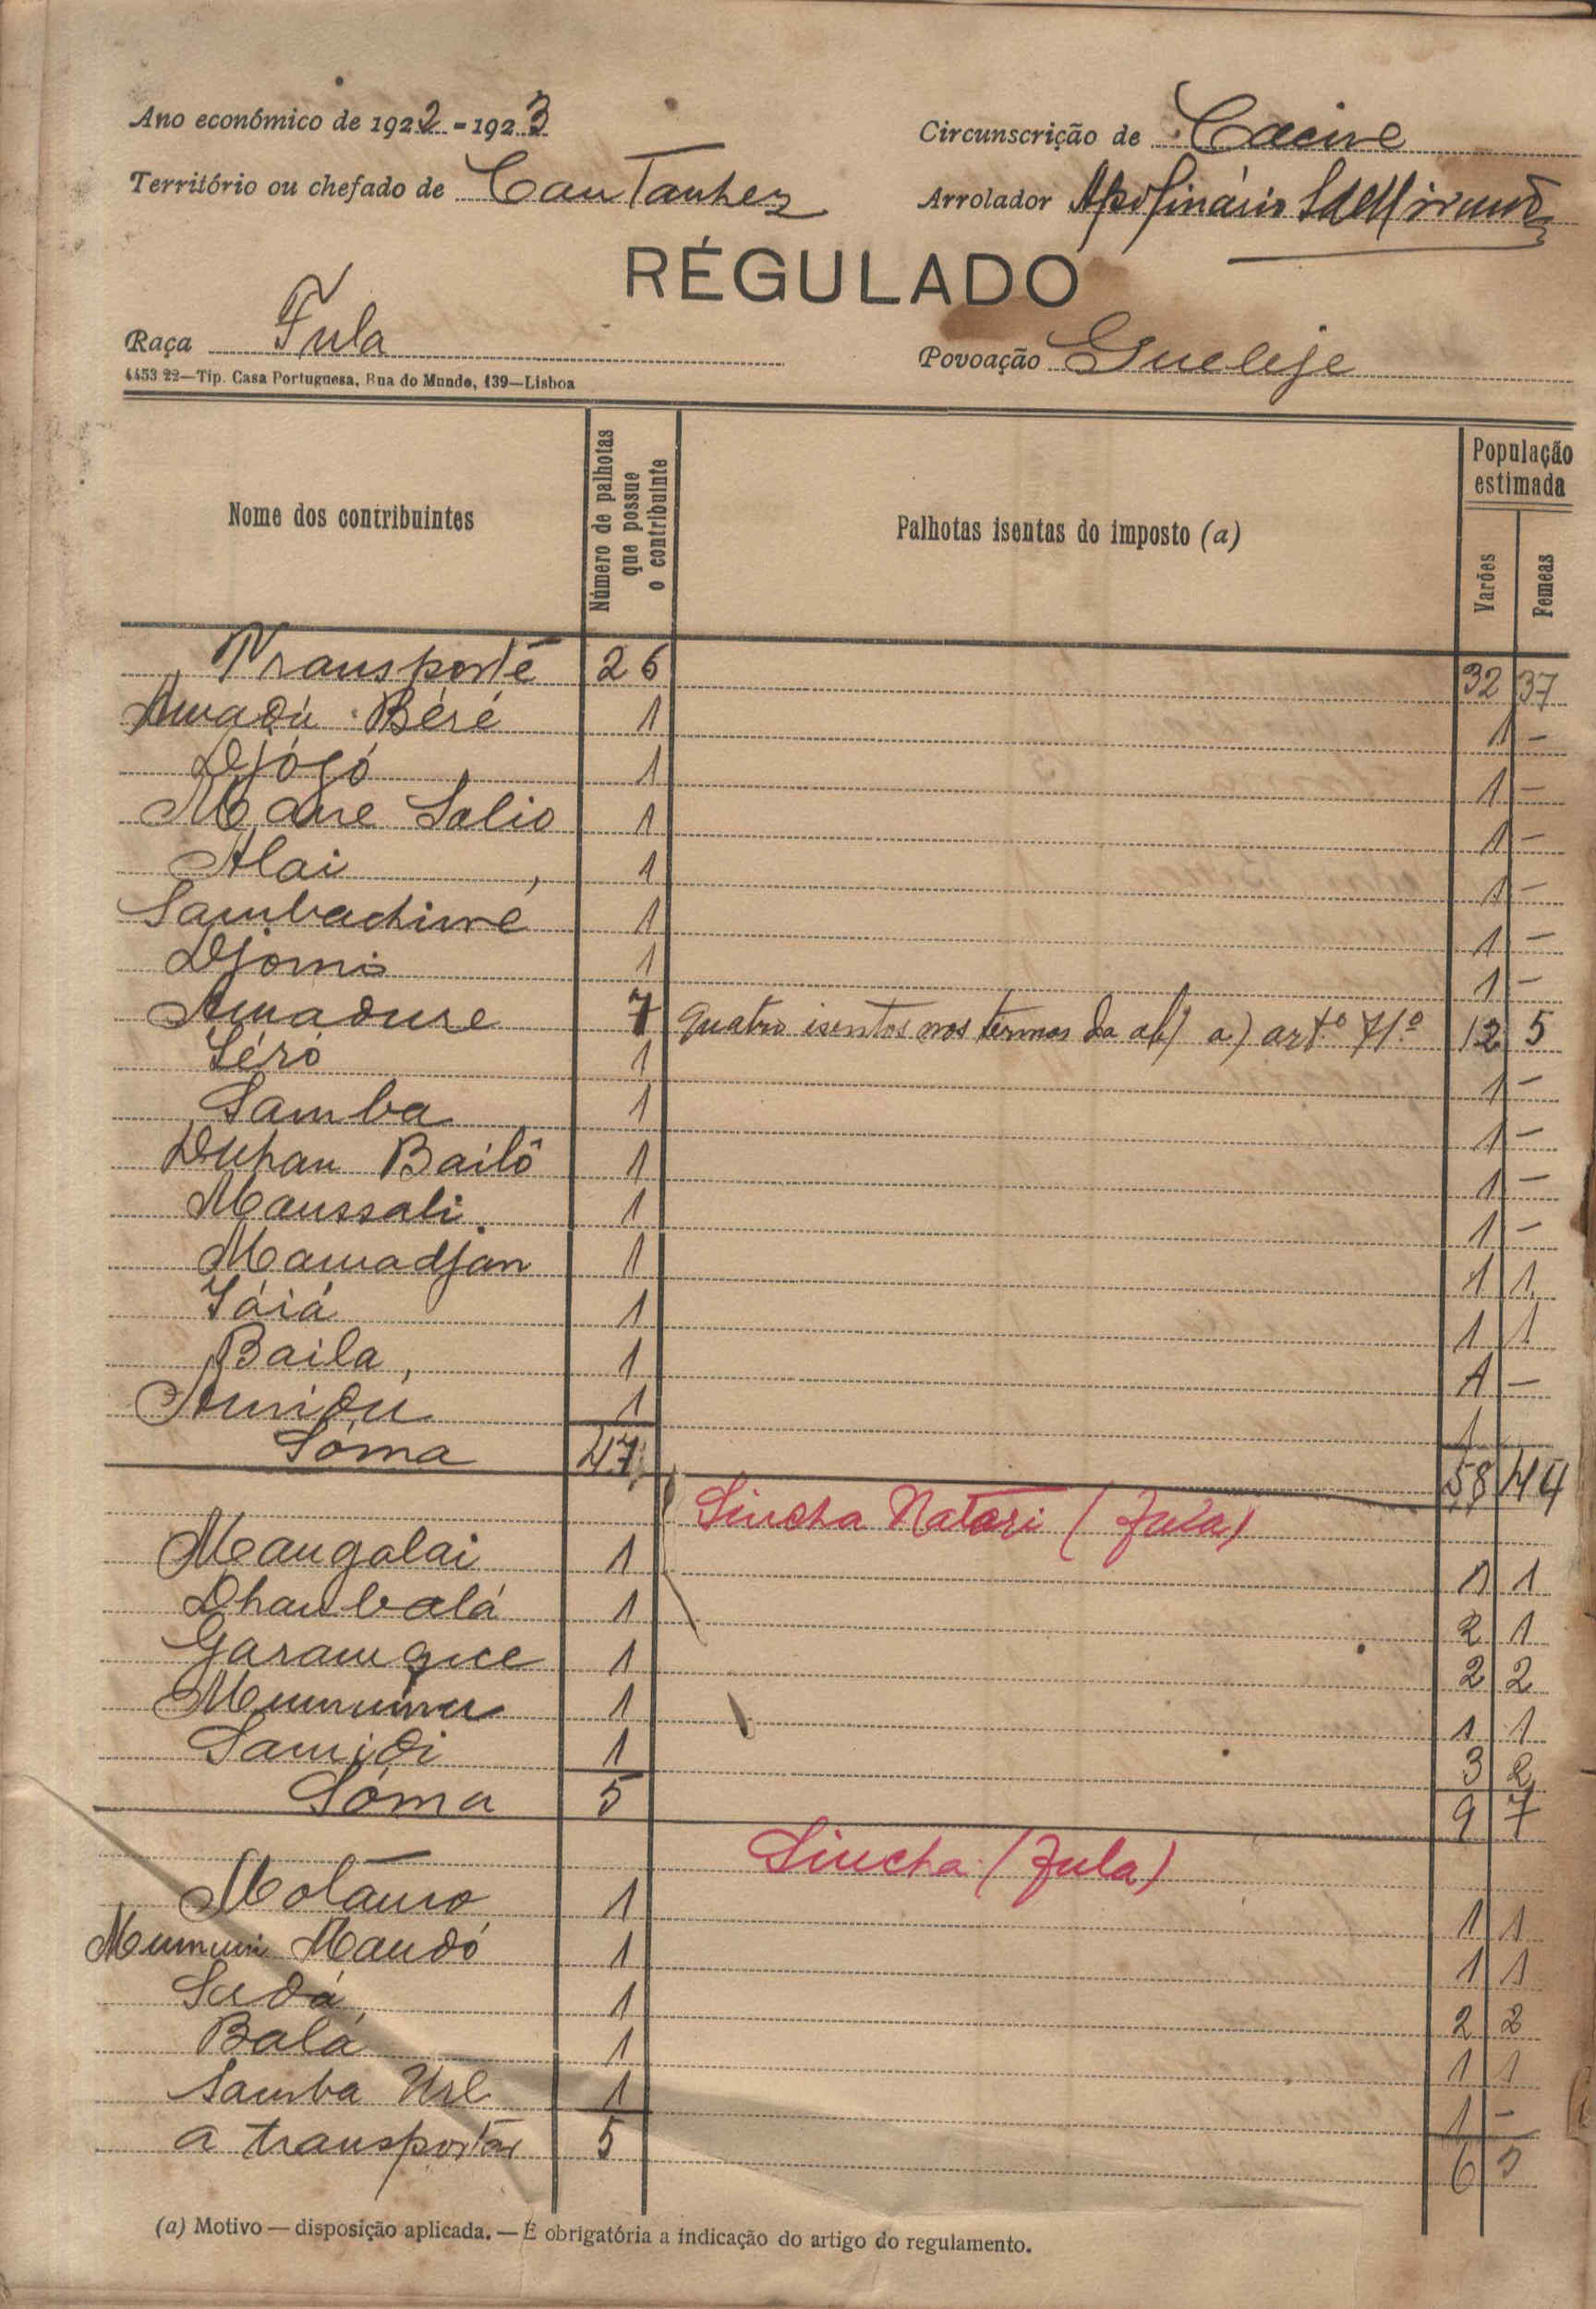 Ano económico de 1922-1923
Circunscrição de Cacine
Território ou chefado de Cantanhez
Arrolador Apolinário
RÉGULADO
Raça Fula
Povoação Gueleje
4453 22—Tip. Casa Portuguesa, Rua do Mundo, 139—Lisboa
Nome dos contribuintes
Número de palhotas que possue o contribuinte
Palhotas isentas do imposto (a)
População estimada
Varões
Femeas
Transporte 26 32 37
Amadú Béré 1 1 —
Djógó 1 1 —
Mané Salio 1 1 —
Alai 1 1 —
Sambachiré 1 1 —
Djomis 1 1 —
Amadure 7 quatro isentos nos termos da al) a) artº 71º 12 5
Séró 1 1 —
Samba 1 1 —
Duhan Bailô 1 1 —
Maussali 1 1 —
Mamadjan 1 1 1
Iáiá 1 1 1
Baila 1 1 —
Amidú 1 1
Sóma 47 58 44
Sincha Natari (Fula)
Mangalai 1 1 1
Dhanbalá 1 2 1
1 2 2
1 1 1
Samidi 1 3 2
Sóma 5 9 7
Sincha (Fula)
Motáuro 1 1 1
Mumuni Mandó 1 1 1
Sudá 1 2 2
Balá 1 1 1
Samba 1 1 —
a transportar 5 6 5
(a) Motivo — disposição aplicada. — É obrigatória a indicação do artigo do regulamento.